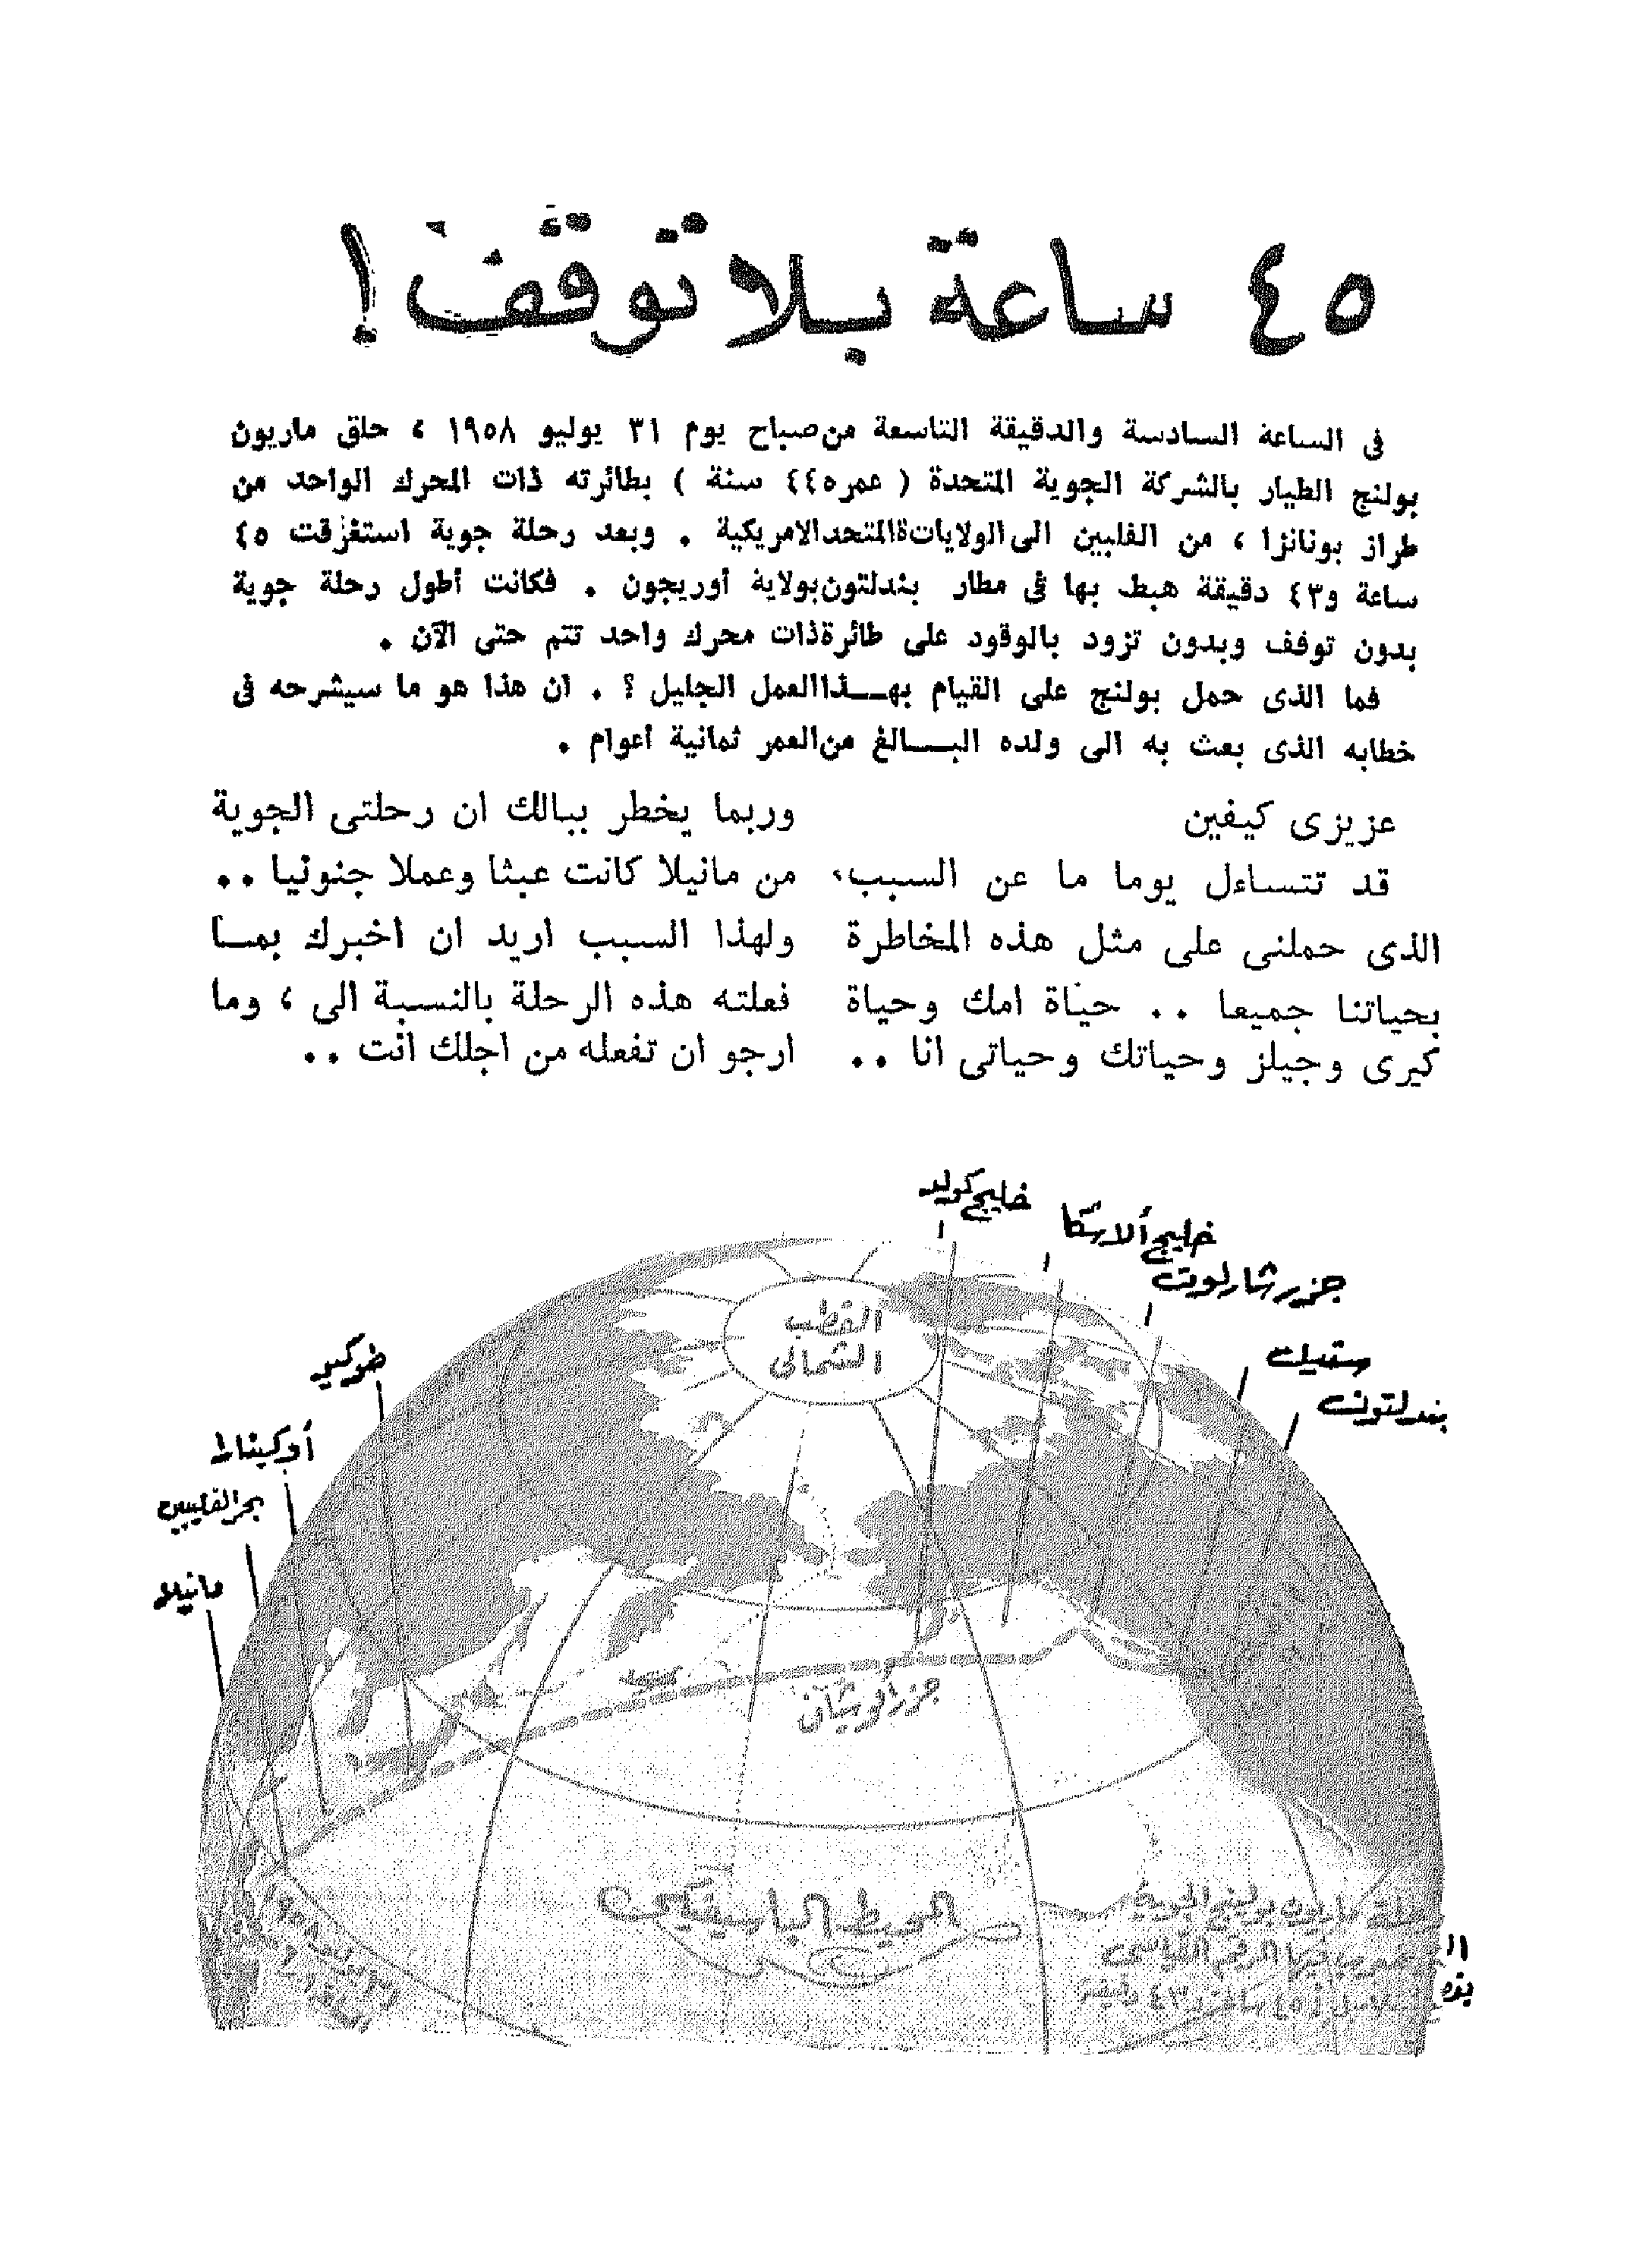 ٤٥ ساعة بلا توقف !
فى الساعة السادسة والدقيقة التاسعة من صباح يوم ٣١ يوليو ١٩٥٨ ، حلق ماريون
بولنج الطيار بالشركة الجوية المتحدة ( عمره ٤٤ سنة ) بطائرته ذات المحرك الواحد من
طراز بونانزا ، من الفلبين الى الولاياتةالمتحد الامريكية . وبعد رحلة جوية استغرقت ٤٥
ساعة و٤٣ دقيقة هبط بها فى مطار بندلتون بولاية أوريجون . فكانت أطول رحلة جوية
بدون توفف وبدون تزود بالوقود على طائرة ذات محرك واحد تتم حتى الآن .
فما الذى حمل بولنج على القيام بهـــذا العمل الجليل ؟ . ان هذا هو ما سيشرحه فى
خطابه الذى بعث به الى ولده البـــالغ من العمر ثمانية أعوام .
عزيزى كيفين
قد تتساءل يوما ما عن السبب،
الذى حملنى على مثل هذه المخاطرة
بحياتنا جميعا .. حياة امك وحياة
كيرى وجيلز وحياتك وحياتى انا ..
وربما يخطر ببالك ان رحلتى الجوية
من مانيلا كانت عبثا وعملا جنونيا ..
ولهذا السبب اريد ان اخبرك بمــا
فعلته هذه الرحلة بالنسبة الى ، وما
ارجو ان تفعله من اجلك انت ..
خليج كولد
خليج ألاسكا
جزر شارلوت
بندلتون
القطب
الشمالى
أوكيناوا
بحر الفلبين
مانيلا
المحيط الباسيفيكى